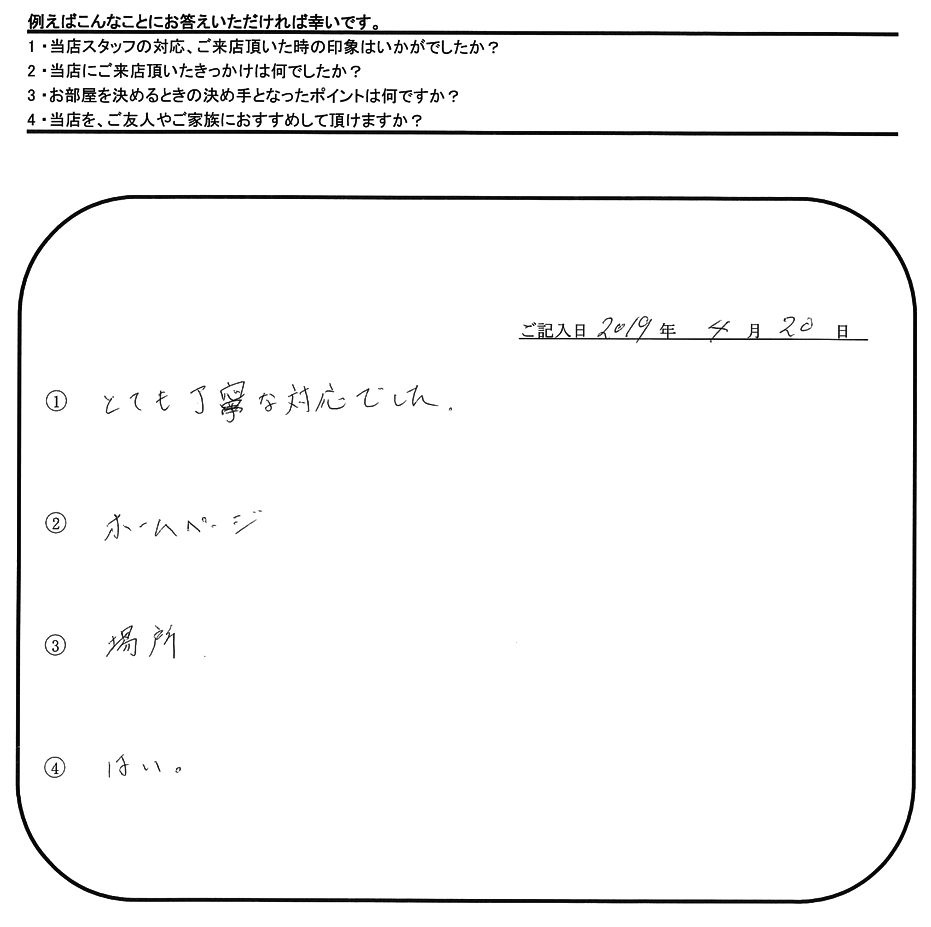 例えばこんなことにお答えいただければ幸いです。
1・当店スタッフの対応、ご来店頂いた時の印象はいかがでしたか？
2・当店にご来店頂いたきっかけは何でしたか？
3・お部屋を決めるときの決め手となったポイントは何ですか？
4・当店を、ご友人やご家族におすすめして頂けますか？
ご記入日 2019 年 4 月 20 日
① とても丁寧な対応でした.
② ホームページ
③ 場所.
④ はい。